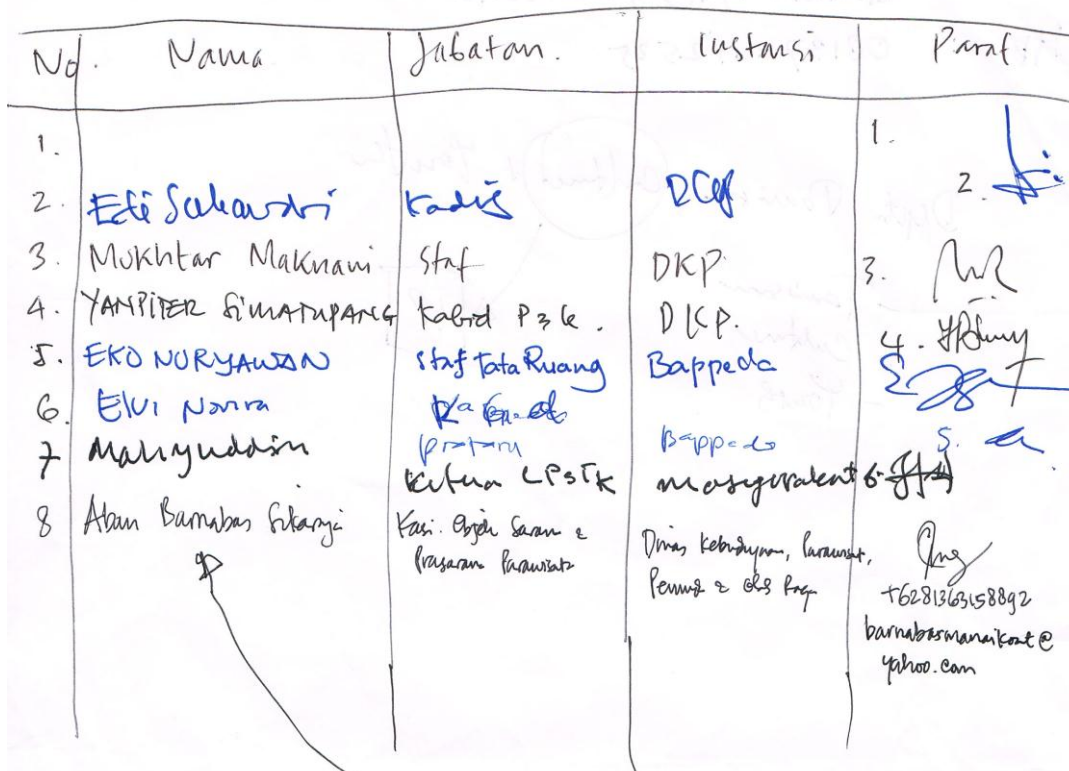 No. Nama Jabatan. Instansi Paraf.
1. 1.
2. Edi Sukardi Kadis DKP 2.
3. Mukhtar Maknawi Staf DKP 3.
4. YANPITER SIMATUPANG Kabid P3K. DKP. 4.
5. EKO NURYAWAN Staf Tata Ruang Bappeda
6. Elvi Novira Bappeda 5.
7 Mahyuddin Ketua LPSTK masyarakat 6.
8 Aban Barnabas Sikaraja Kasi. Objek Sarana &
Prasarana Parawisata
Dinas Kebudayaan, Parawisat,
Pemuda & Olah Raga
+6281363158892
barnabasmanaikoat@
yahoo.com